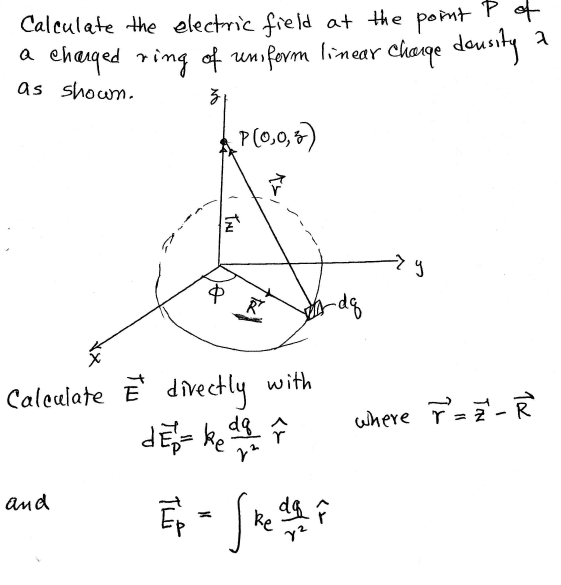 Calculate the electric field at the point P of
a charged ring of uniform linear charge density λ
as shown.
z
P(0,0,z)
r⃗
z⃗
y
ϕ
R⃗
dq
x
Calculate E⃗ directly with
dE⃗p = ke dq/r² r̂ where r⃗ = z⃗ - R⃗
and
E⃗p = ∫ ke dq/r² r̂